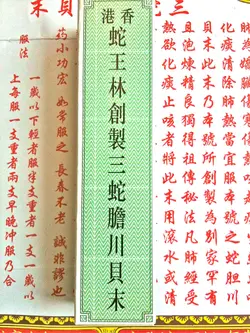 三
貝末
化痰清肺熱當宜服本號之蛇胆川
貝末此乃本號所創製為別家罕有
且泡煉精良獨得祖傳秘法凡肺家受
熱欲化痰止咳者將此末用滾水或清
香港
蛇王林創製三蛇膽川貝末
葯小功宏 如常服之 長春不老 誠非謬也
服法
一歲以下輕者服半支重者一支一歲以
上每服一支重者兩支早晚冲服乃合